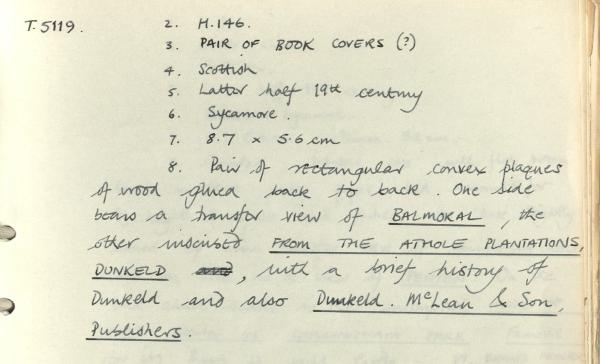 T.5119.
2. H.146.
3. PAIR OF BOOK COVERS (?)
4. Scottish
5. Latter half 19th century
6. Sycamore.
7. 8.7 x 5.6 cm
8. Pair of rectangular convex plaques
of wood glued back to back. One side
bears a transfer view of BALMORAL, the
other inscribed FROM THE ATHOLE PLANTATIONS,
DUNKELD and, with a brief history of
Dunkeld and also Dunkeld. McLean & Son,
Publishers.